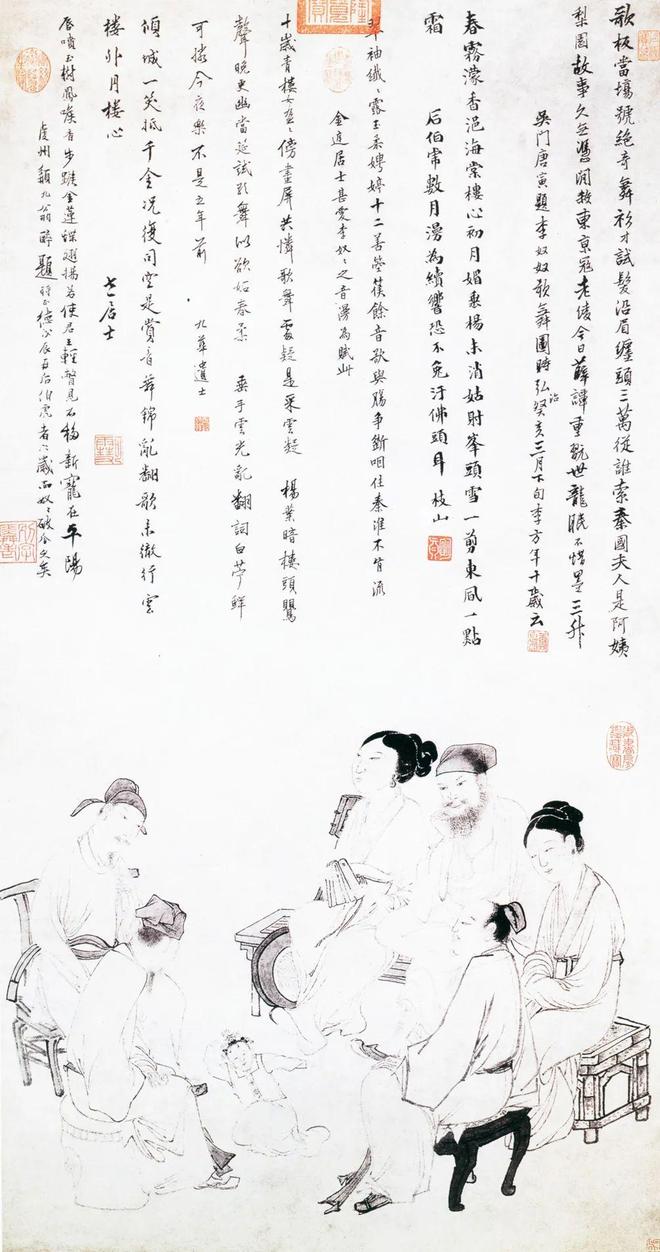 歌板當場號絕奇舞衫才試髮沿眉纏頭三萬從誰索秦國夫人是阿姨
梨園故事久無憑閒按東京寇老綾今日薛諱重翫世龍眠不惜墨三升
吳門唐寅題李奴奴歌舞圖時弘治癸亥三月下旬李方年十歲云
春霧濛香浥海棠樓心初月媚垂楊未消姑射峯頭雪一剪東風一點
霜 后伯常數月漫為續響恐不免汙佛頭耳 枝山
翠袖纖纖露玉柔娉婷十二善箜篌餘音欲與腸爭斷咽住秦淮不肯流
金逵居士甚愛李奴奴之音漫為賦此
十歲青樓女盈盈傍畫屏共憐歌舞處疑是采雲凝 楊葉暗樓頭鶯
聲晚更幽當延試歌舞似欲妬春柔 垂手雲光亂翻詞白苧鮮
可據今夜樂不是五年前 九華遺士
傾城一笑抵千金況復同堂是賞音舞錦亂翻歌未徹行雲
樓外月樓心
居士
唇噴玉樹鳳喉音步蹴金蓮蝶翅揚若使君王輕瞥見不移新寵在平陽
虔州穎九翁醉題